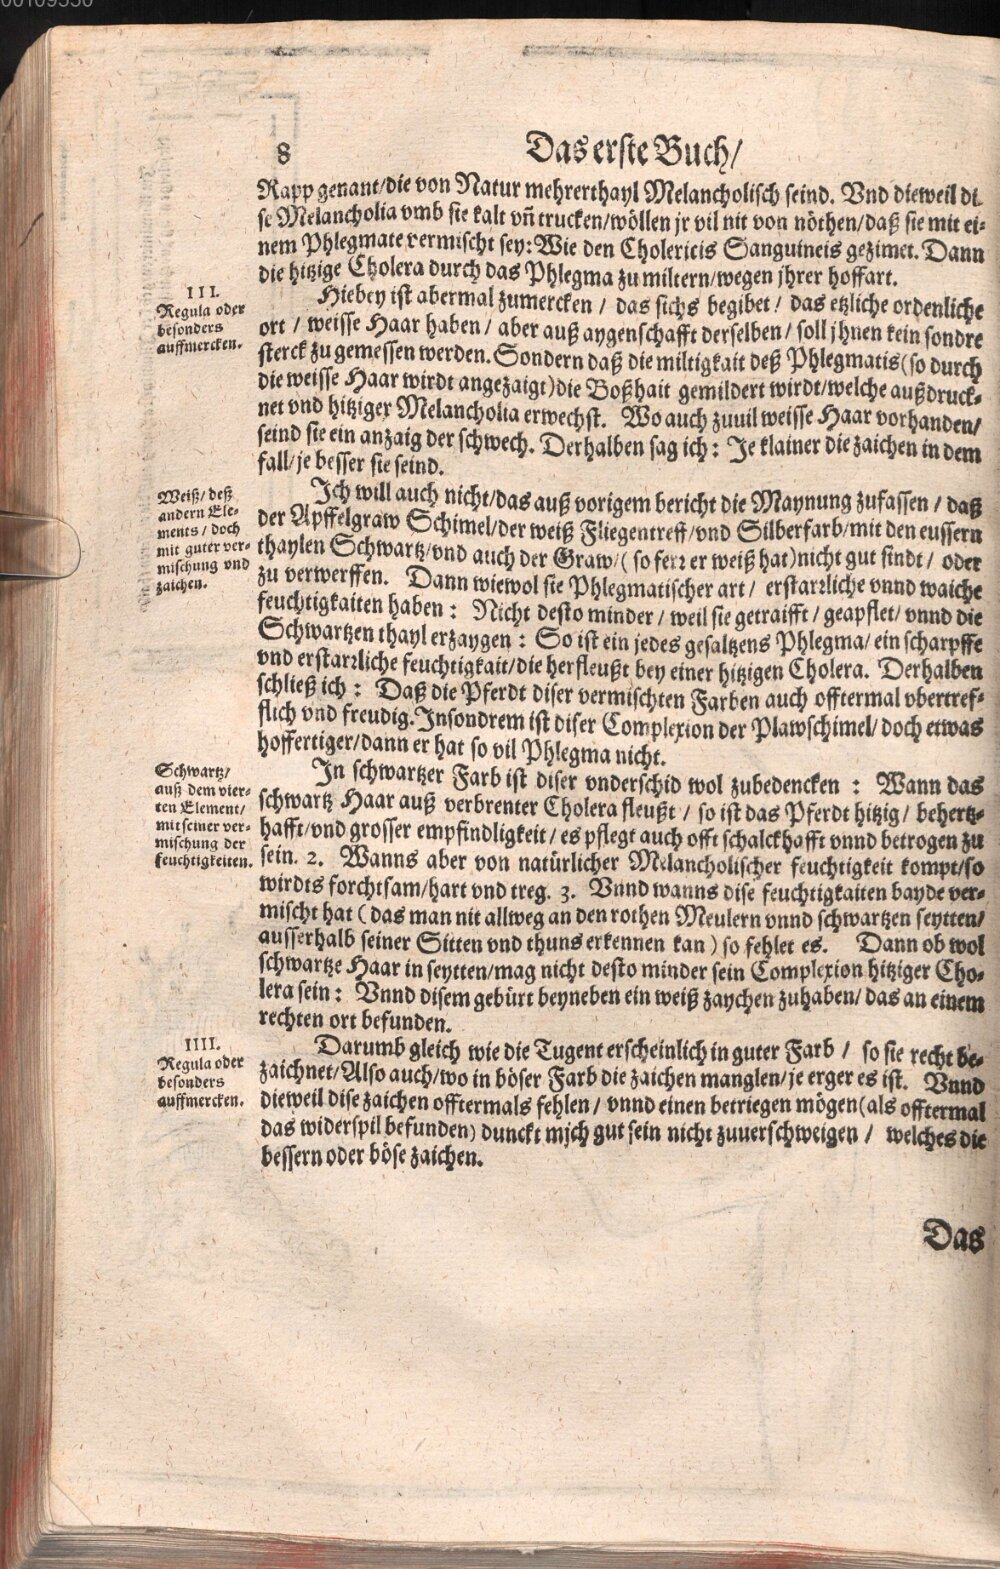 8
Das erste Buch/
Rapp genant/die von Natur mehrerthayl Melancholisch seind. Vnd dieweil di-
se Melancholia vmb sie kalt vñ trucken/wöllen jr vil nit von nöthen/daß sie mit ei-
nem Phlegmate vermischt sey: Wie den Cholericis Sanguineis gezimet. Dann
die hitzige Cholera durch das Phlegma zu miltern/wegen jhrer hoffart.
III.
Regula oder
besonders
auffmercken.
Hiebey ist abermal zumercken / das sichs begibet / das etzliche ordenliche
ort / weisse Haar haben / aber auß aygenschafft derselben / soll jhnen kein sondre
sterck zu gemessen werden. Sondern daß die miltigkait deß Phlegmatis (so durch
die weisse Haar wirdt angezaigt) die Boßhait gemildert wirdt/welche auß druck-
net vnd hitziger Melancholia erwechst. Wo auch zuuil weisse Haar vorhanden/
seind sie ein anzaig der schwech. Derhalben sag ich : Je klainer die zaichen in dem
fall/je besser sie seind.
Weiß/ deß
andern Ele-
ments / doch
mit guter ver-
mischung vnd
zaichen.
Ich will auch nicht/das auß vorigem bericht die Maynung zufassen / daß
der Apffelgraw Schimel/der weiß Fliegentreff/vnd Silberfarb/mit den eussern
thaylen Schwartz/vnd auch der Graw/( so ferr er weiß hat) nicht gut sindt / oder
zu verwerffen. Dann wiewol sie Phlegmatischer art / erstarrliche vnnd waiche
feuchtigkaiten haben : Nicht desto minder / weil sie getraifft / geapflet/ vnnd die
Schwartzen thayl erzaygen : So ist ein jedes gesaltzens Phlegma/ ein scharpffe
vnd erstarrliche feuchtigkait/die herfleußt bey einer hitzigen Cholera. Derhalben
schließ ich : Daß die Pferdt diser vermischten Farben auch offtermal vbertref-
flich vnd freudig. Insondrem ist diser Complexion der Plawschimel/ doch etwas
hoffertiger/dann er hat so vil Phlegma nicht.
Schwartz/
auß dem vier-
ten Element/
mit seiner ver-
mischung der
feuchtigkeiten.
In schwartzer Farb ist diser vnderschid wol zubedencken : Wann das
schwartz Haar auß verbrenter Cholera fleußt / so ist das Pferdt hitzig / behertz-
hafft/vnd grosser empfindligkeit / es pflegt auch offt schalckhafft vnnd betrogen zu
sein. 2. Wanns aber von natürlicher Melancholischer feuchtigkeit kompt/so
wirdts forchtsam/hart vnd treg. 3. Vnnd wanns dise feuchtigkaiten bayde ver-
mischt hat ( das man nit allweg an den rothen Meulern vnnd schwartzen seytten/
ausserhalb seiner Sitten vnd thuns erkennen kan ) so fehlet es. Dann ob wol
schwartze Haar in seytten/mag nicht desto minder sein Complexion hitziger Cho-
lera sein : Vnnd disem gebürt beyneben ein weiß zaychen zuhaben/ das an einem
rechten ort befunden.
IIII.
Regula oder
besonders
auffmercken.
Darumb gleich wie die Tugent erscheinlich in guter Farb / so sie recht be-
zaichnet/Also auch/wo in böser Farb die zaichen manglen/je erger es ist. Vnnd
dieweil dise zaichen offtermals fehlen / vnnd einen betriegen mögen(als offtermal
das widerspil befunden) dunckt mich gut sein nicht zuuerschweigen / welches die
bessern oder böse zaichen.
Das